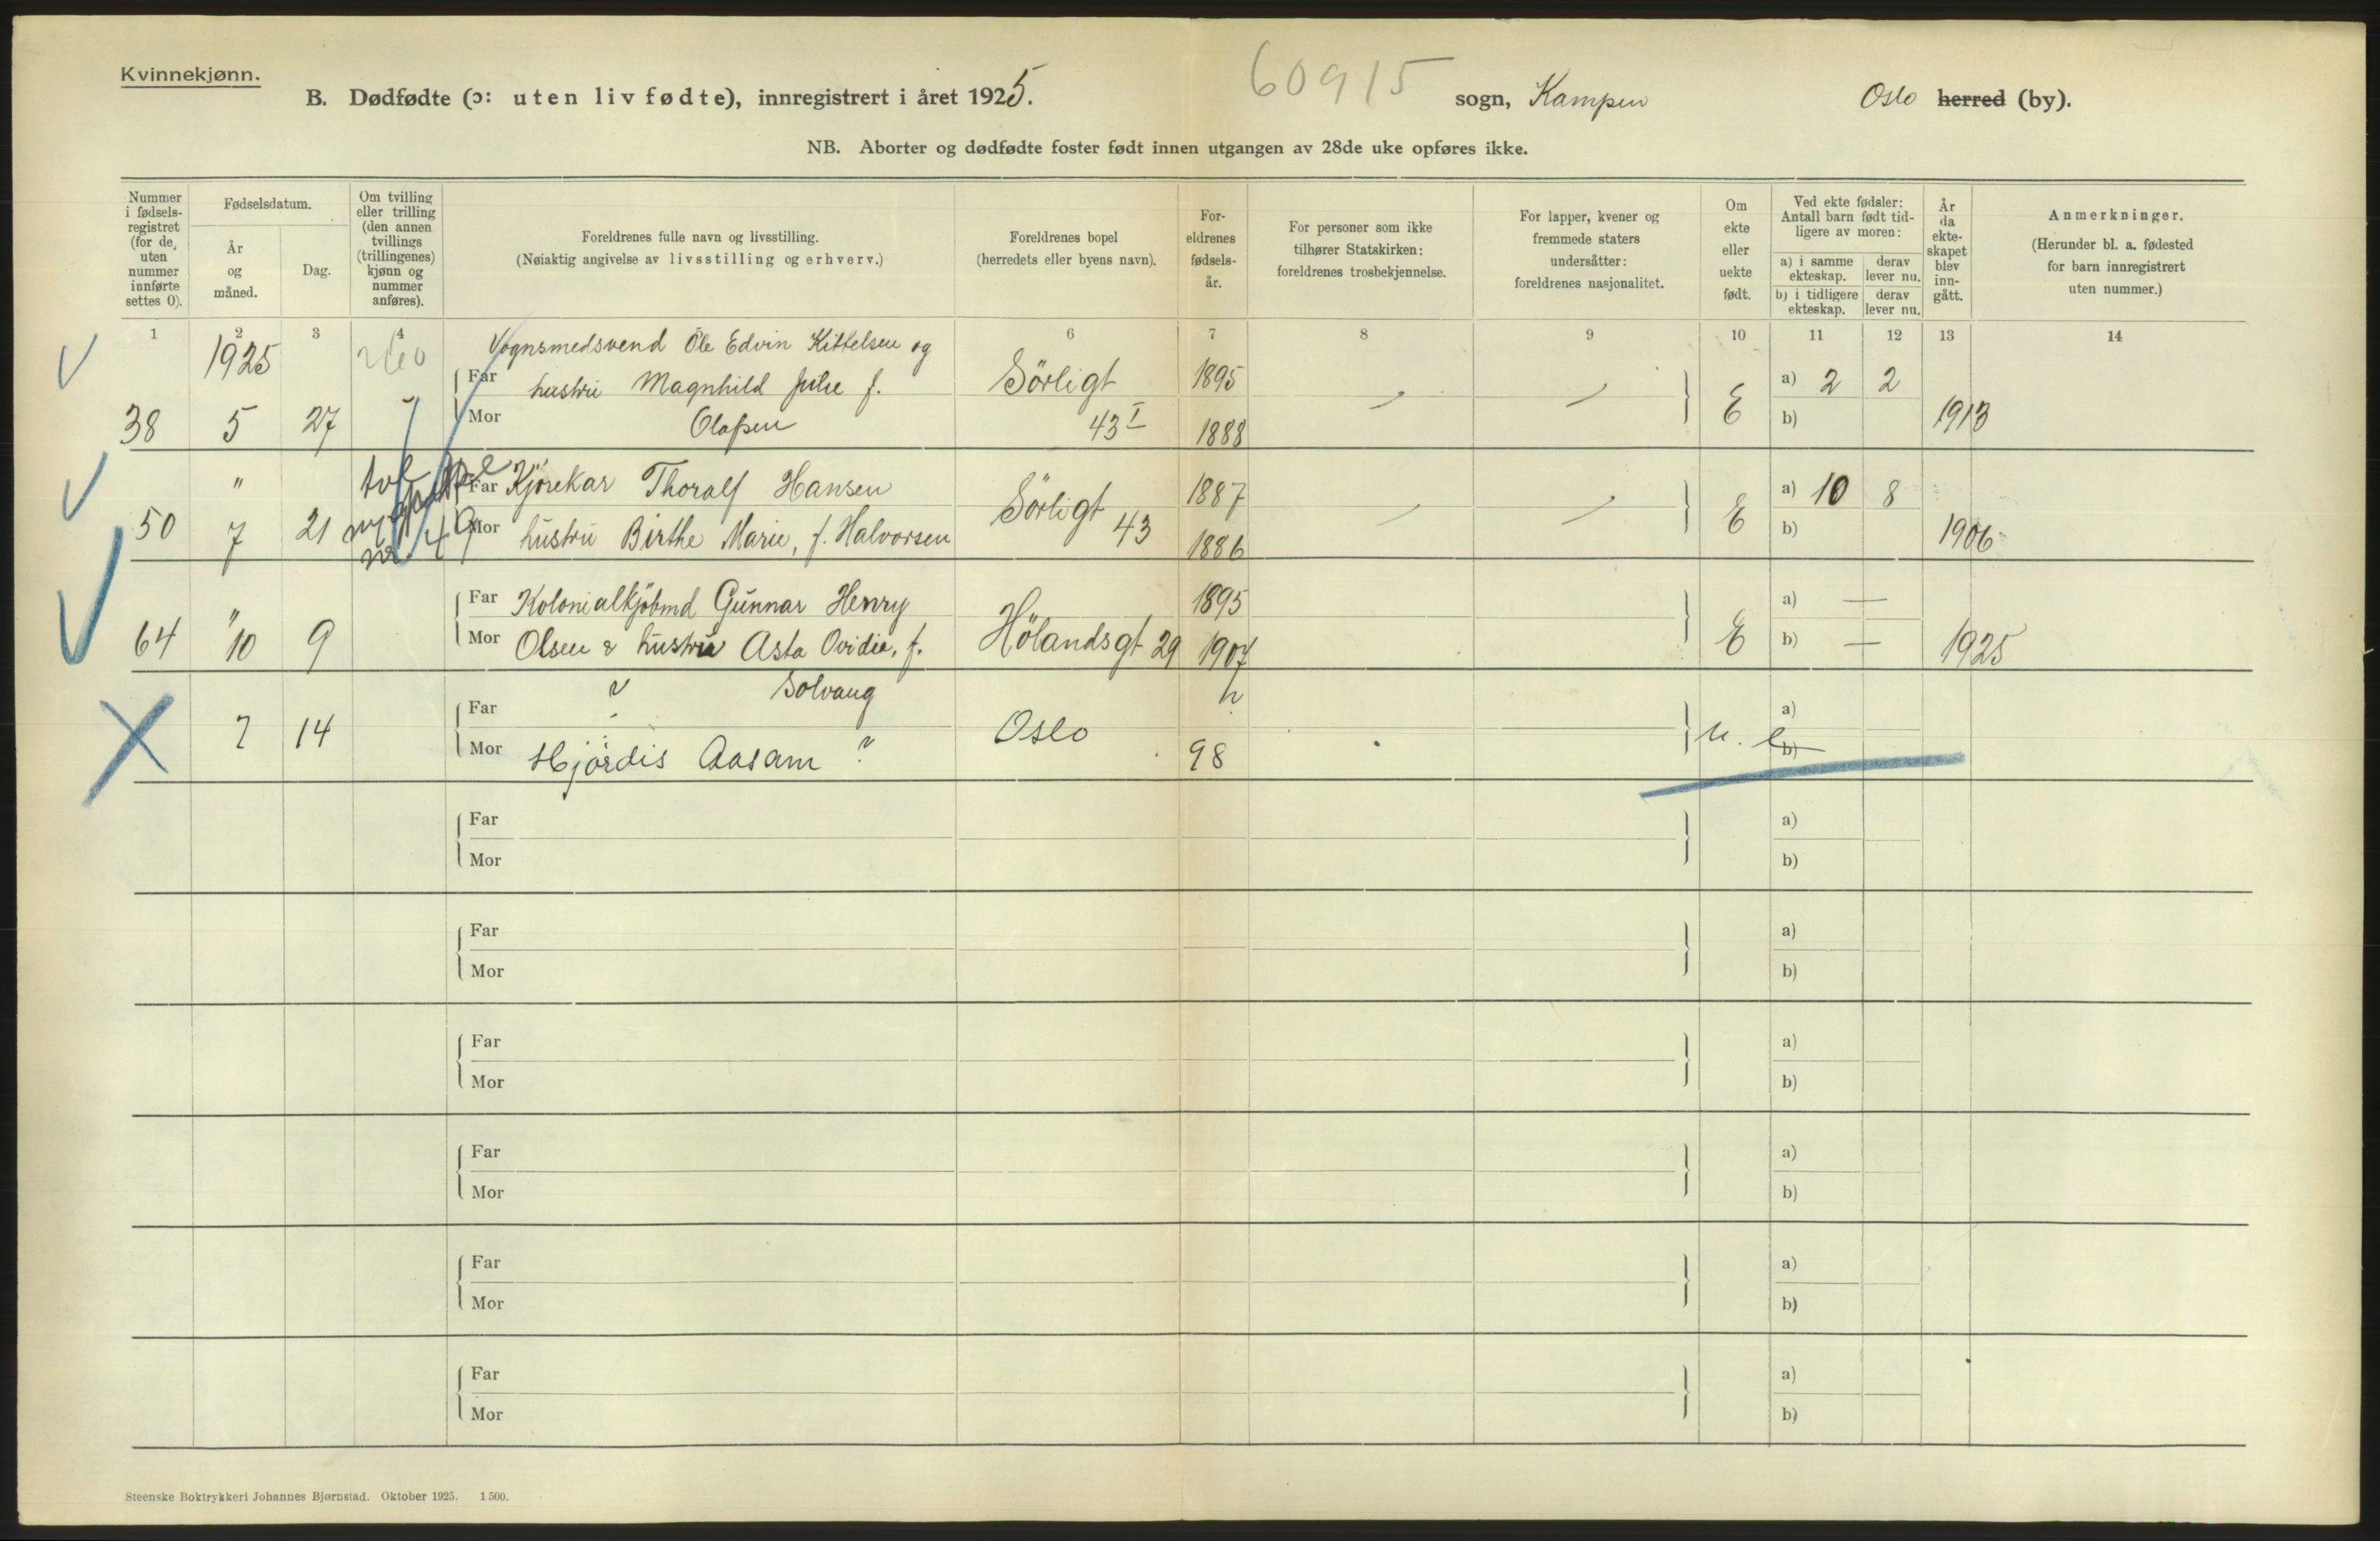 Kvinnekjønn.
60915
B. Dødfødte (ɔ: uten liv fødte), innregistrert i året 1925. sogn, Kampen Oslo herred (by).
NB. Aborter og dødfødte foster født innen utgangen av 28de uke opføres ikke.
Nummer i fødsels-registret (for de uten nummer innførte settes 0).
Fødselsdatum.
År og måned.
Dag.
Om tvilling eller trilling (den annen tvillings (trillingenes) kjønn og nummer anføres).
Foreldrenes fulle navn og livsstilling.
(Nøiaktig angivelse av livsstilling og erhverv.)
Foreldrenes bopel
(herredets eller byens navn).
For-eldrenes fødsels-år.
For personer som ikke tilhører Statskirken: foreldrenes trosbekjennelse.
For lapper, kvener og fremmede staters undersåtter: foreldrenes nasjonalitet.
Om ekte eller uekte født.
Ved ekte fødsler: Antall barn født tid-ligere av moren:
a) i samme ekteskap.
derav lever nu.
b) i tidligere ekteskap.
derav lever nu.
År da ekte-skapet blev inn-gått.
Anmerkninger.
(Herunder bl. a. fødested for barn innregistrert uten nummer.)
1 2 3 4 6 7 8 9 10 11 12 13 14
1925 Vognsmedsvend Ole Edvin Kittelsen og
Far hustru Magnhild Julie f. Sörligt 1895 a) 2 2
38 5 27 Mor Olafsen 43 I 1888 E b) 1913
" Far Kjörekar Thoralf Hansen Sörligt 1887 a) 10 8
50 7 21 nr 49 Mor hustru Birthe Marie, f. Halvorsen 43 1886 E b) 1906
Far Kolonialkjöbmd Gunnar Henry 1895 a) —
64 " 10 9 Mor Olsen & hustru Asta Ovidie, f. Hölandsgt 29 1907 E b) — 1925
Solvang
Far ? a)
7 14 Oslo u. e
Mor Hjördis Aasam ? 98 b)
Far a)
Mor b)
Far a)
Mor b)
Far a)
Mor b)
Far a)
Mor b)
Far a)
Mor b)
Far a)
Mor b)
Steenske Boktrykkeri Johannes Bjørnstad. Oktober 1925. 1500.